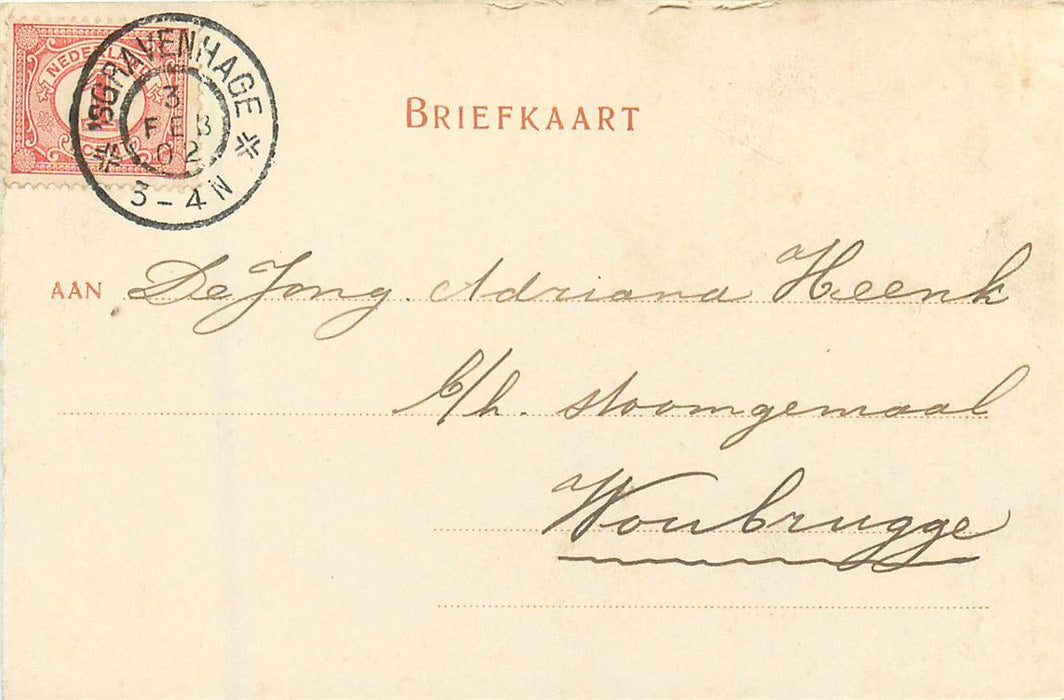 NEDERLAND
'SGRAVENHAGE
3
FEB
02
3-4 N
BRIEFKAART
AAN De Jong. Adriana Heenk
b/h. stoomgemaal
Woubrugge